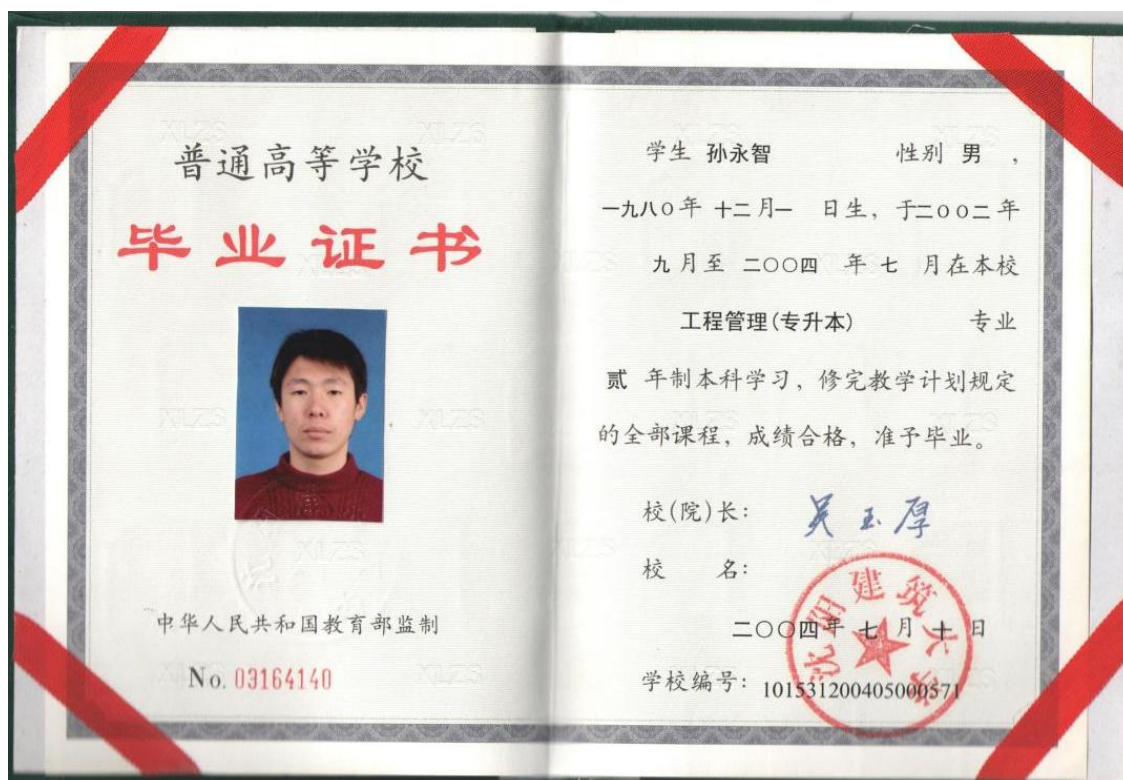 普通高等学校
毕业证书
中华人民共和国教育部监制
No. 03164140
学生 孙永智 性别 男，
一九八〇年 十二月一 日生，于二〇〇二年
九月至 二〇〇四 年 七 月在本校
工程管理(专升本) 专业
贰 年制本科学习，修完教学计划规定
的全部课程，成绩合格，准予毕业。
校(院)长： 吴玉厚
校 名：
沈阳建筑大学
二〇〇四年 七 月 十 日
学校编号：101531200405000571
XLZS